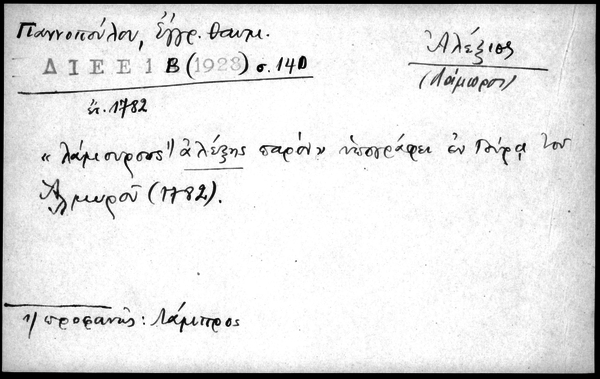 Γιαννοπούλου, Ἔγγρ. θαυμ.
ΔΙΕΕ 1 Β (1928) σ. 140
ἔτ. 1782
Ἀλέξιος
(Λάμπρος)
« λάμουρους¹⁾ ἀλέξης παρὸν» ὑπογράφει ἐν Γούρᾳ τοῦ
Ἁλμυροῦ (1782).
1/ προφανῶς: Λάμπρος